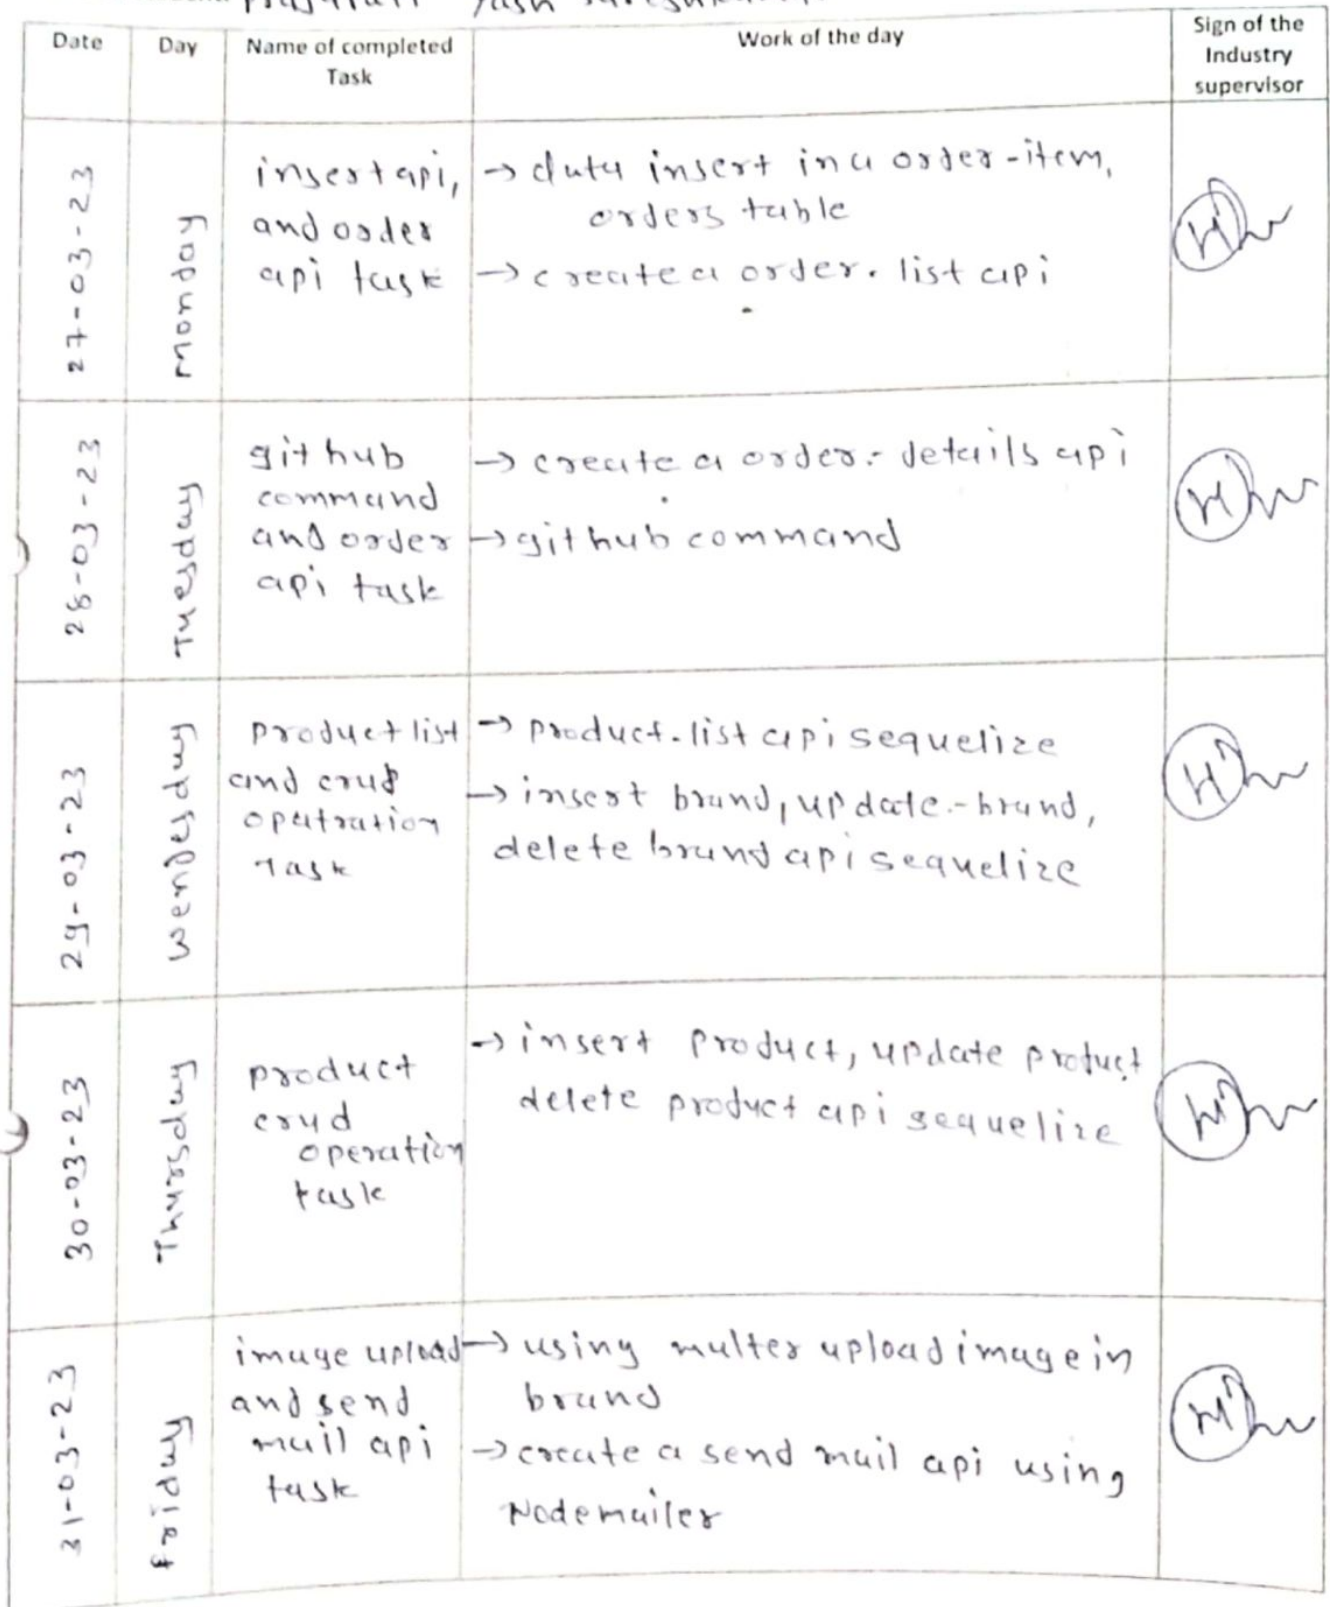 Date
Day
Name of completed
Task
Work of the day
Sign of the
Industry
supervisor
27-03-23
monday
insert api,
and order
api task
→ data insert in a order-item,
orders table
→ create a order. list api
28-03-23
Tuesday
git hub
command
and order
api task
→ create a order.- details api
→ git hub command
29-03-23
wendesday
product list
and crud
opeatration
Task
→ product-list api sequelize
→ insert brand, update-brand,
delete brand api sequelize
30-03-23
Thursday
product
crud
operation
task
→ insert product, update product
delete product api sequelize
31-03-23
friday
image upload
and send
mail api
task
→ using multer upload image in
brand
→ create a send mail api using
Nodemailer